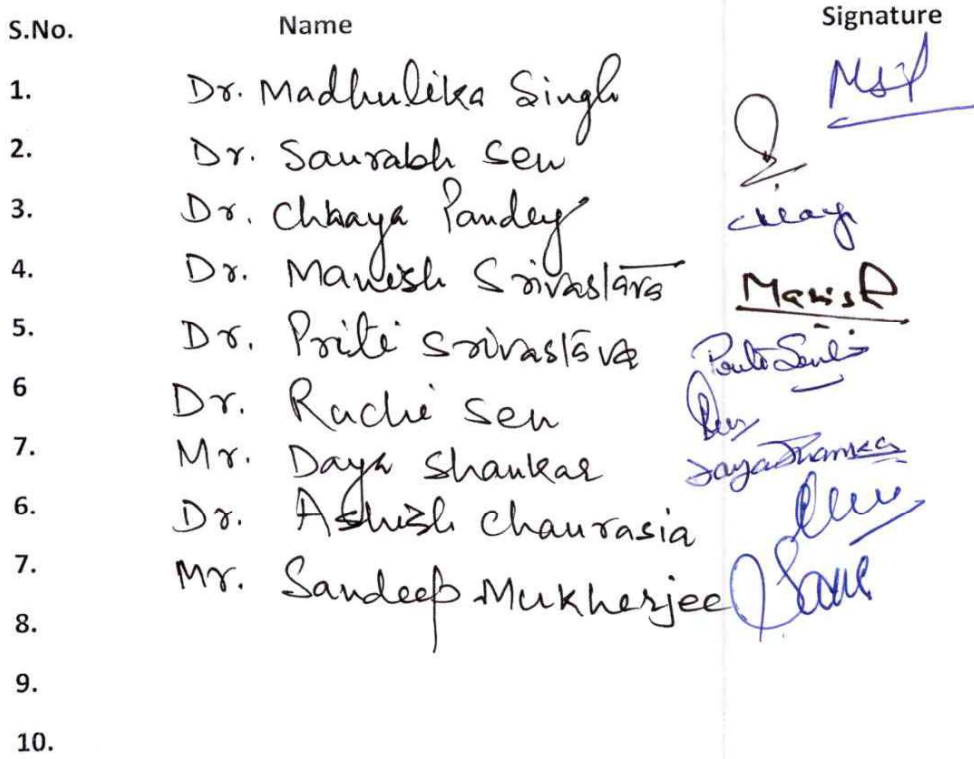 S.No. Name Signature
1. Dr. Madhulika Singh
2. Dr. Saurabh Sen
3. Dr. Chhaya Pandey
4. Dr. Manish Srivastava Manish
5. Dr. Priti Srivastava
6 Dr. Ruchi Sen
7. Mr. Daya Shankar DayaShankar
6. Dr. Ashish Chaurasia
7. Mr. Sandeep Mukherjee
8.
9.
10.